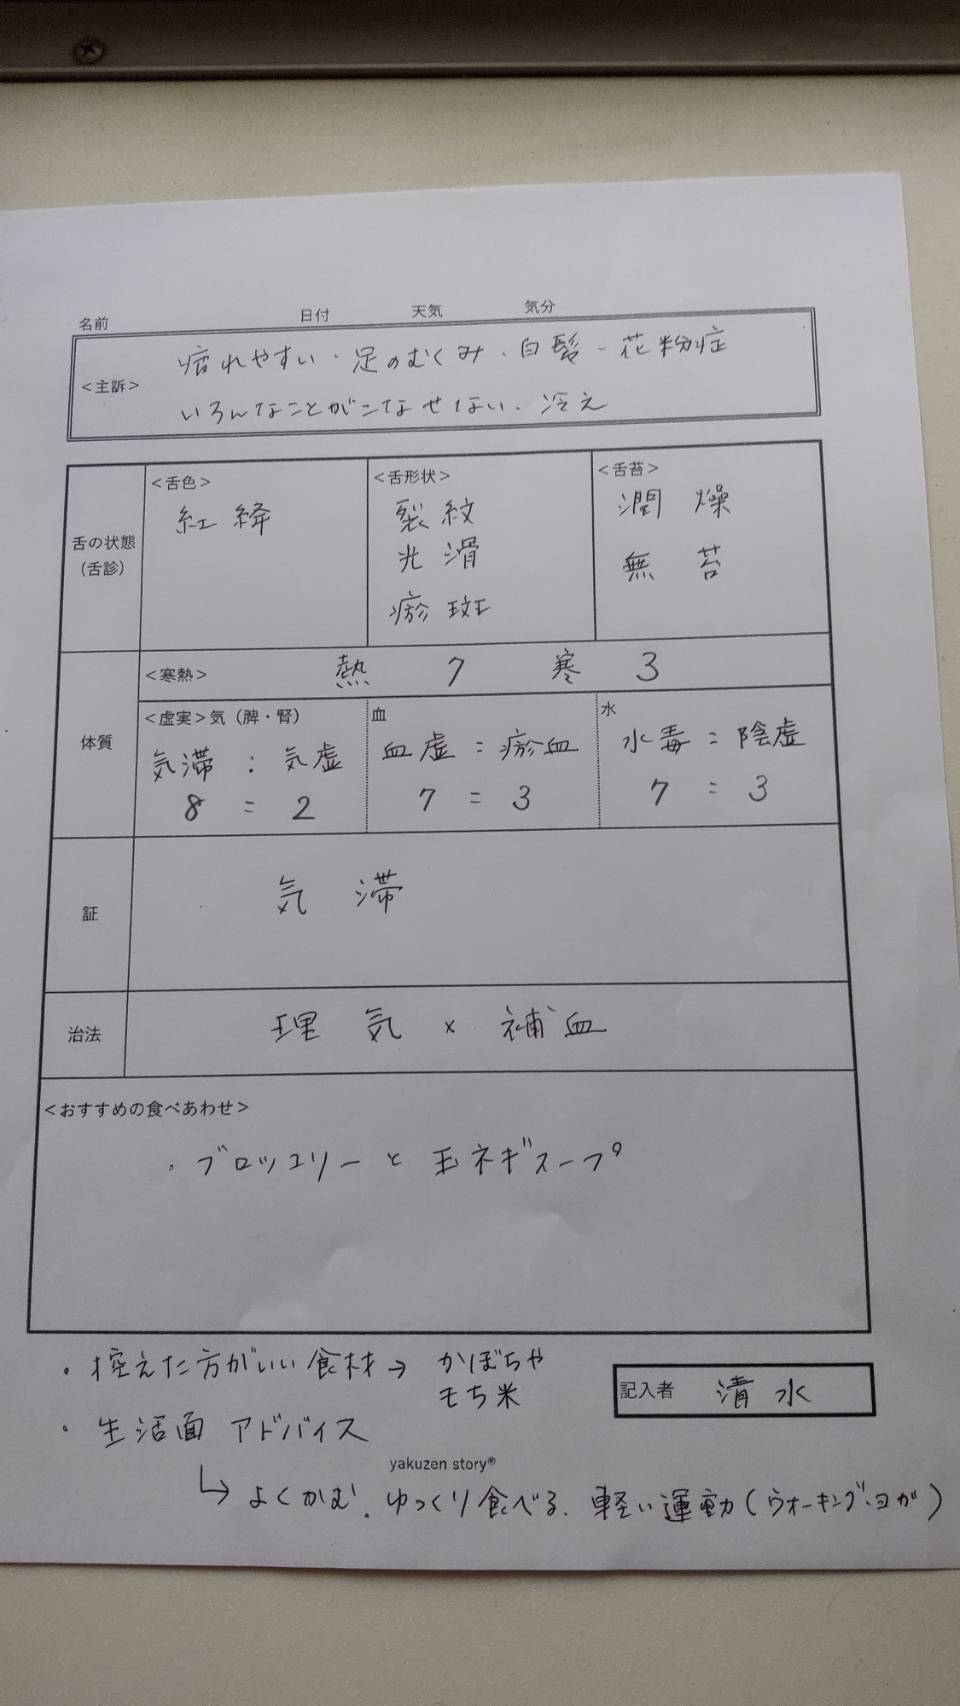 名前 日付 天気 気分
<主訴> 疲れやすい・足のむくみ・白髪・花粉症
いろんなことがこなせない・冷え
舌の状態
(舌診)
<舌色>
紅絳
<舌形状>
裂紋
光滑
瘀斑
<舌苔>
潤 燥
無 苔
体質
<寒熱> 熱 7 寒 3
<虚実>気(脾・腎)
気滞:気虚
8 = 2
血
血虚=瘀血
7 = 3
水
水毒=陰虚
7 = 3
証 気滞
治法 理気 × 補血
<おすすめの食べあわせ>
・ブロッコリーと玉ネギスープ
・控えた方がいい食材→かぼちゃ
もち米
記入者 清水
・生活面アドバイス
yakuzen story®
↳よくかむ、ゆっくり食べる、軽い運動(ウオーキング・ヨガ)